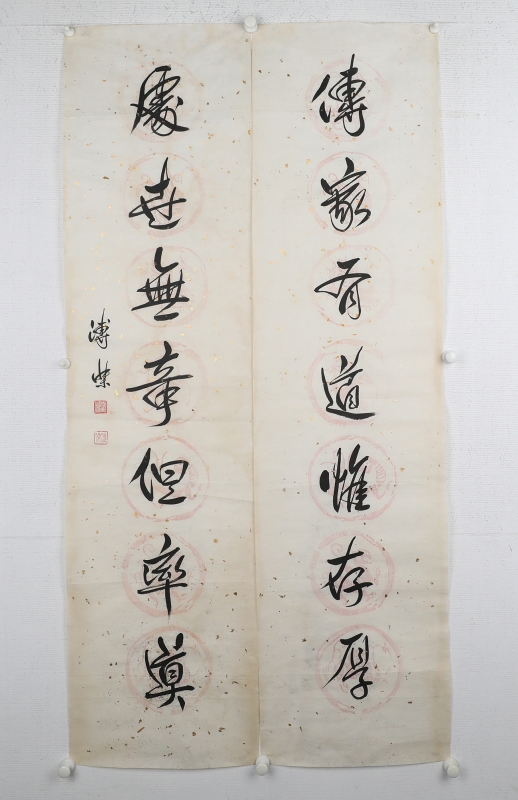 傳家有道惟存厚
處世無奇但率真
溥